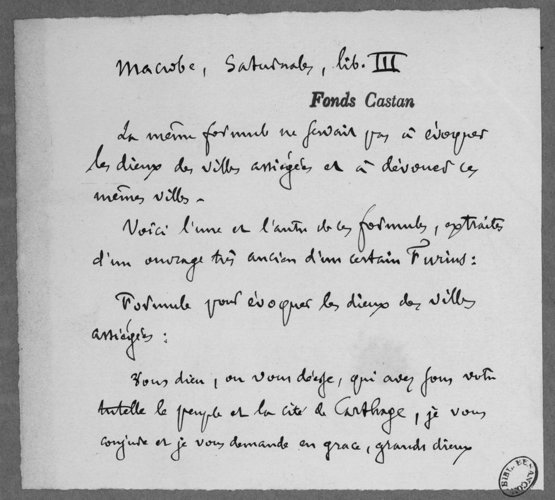 Macrobe, Saturnales, lib. III
Fonds Castan
La même formule ne servait pas à évoquer
les dieux des villes assiégées et à dévouer ces
mêmes villes.
Voici l'une et l'autre de ces formules, extraites
d'un ouvrage très ancien d'un certain Furius :
Formule pour évoquer les dieux des villes
assiégées :
Vous dieu, ou vous déesse, qui avez sous votre
tutelle le peuple et la cité de Carthage, je vous
conjure et je vous demande en grace, grands dieux